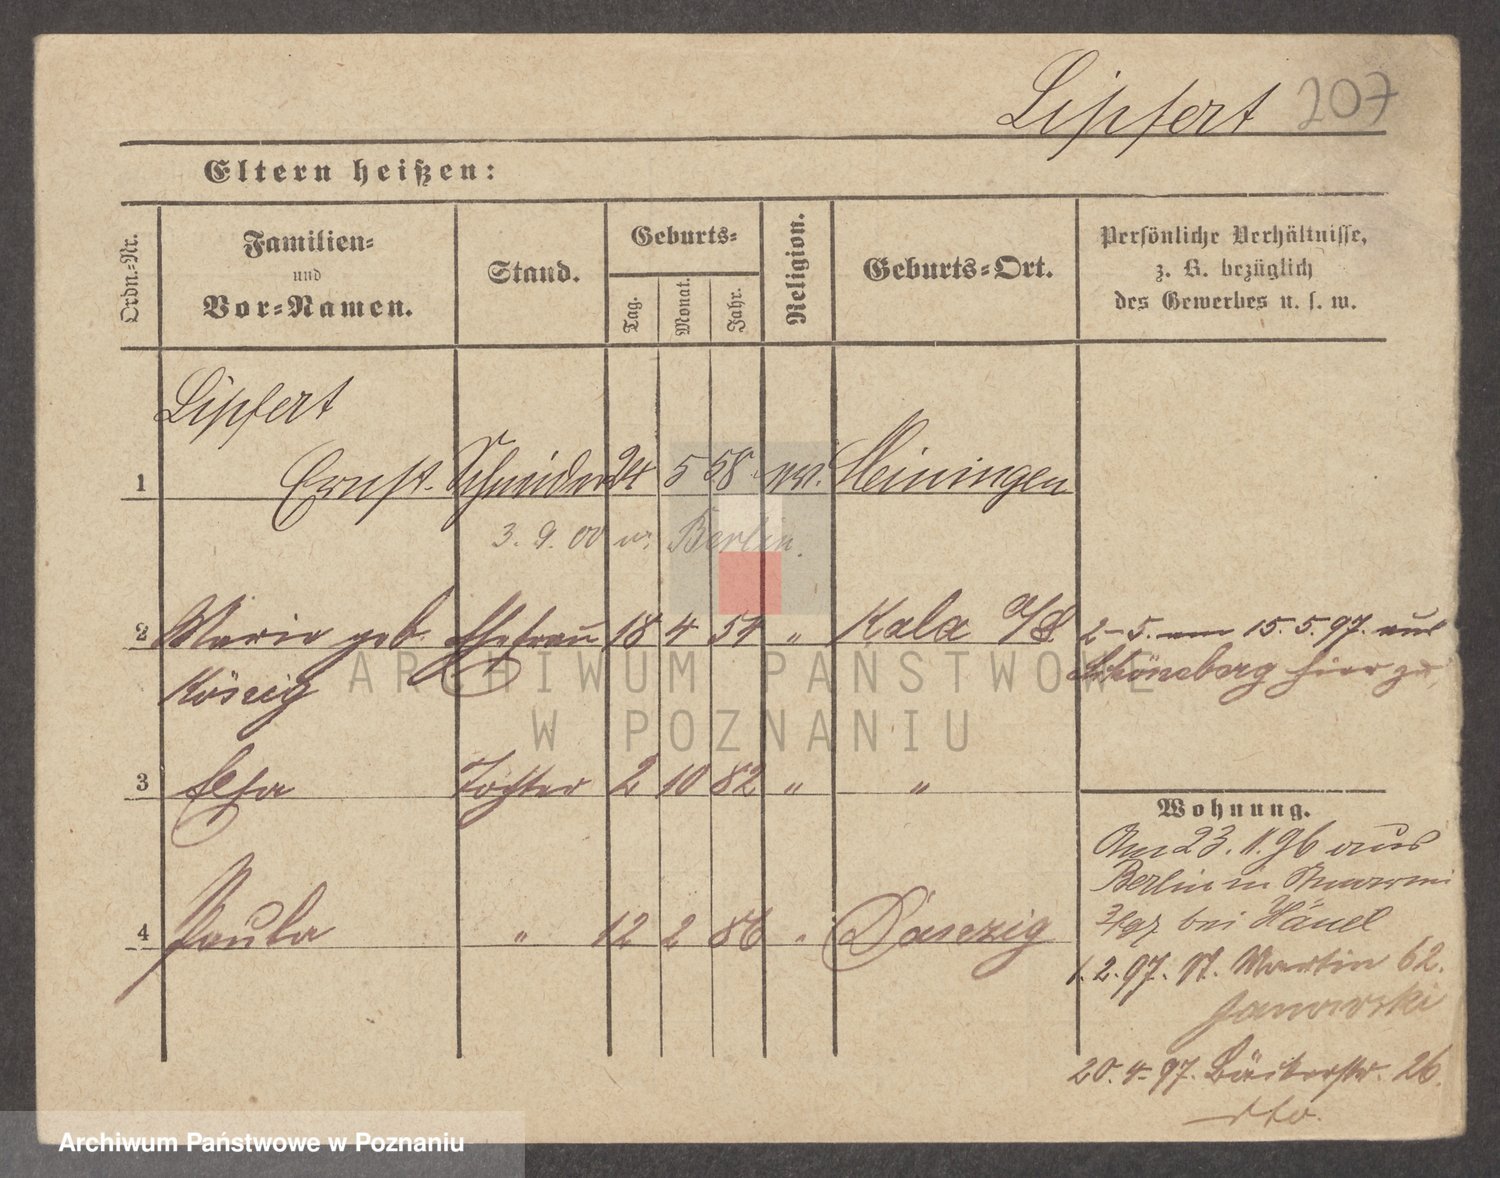 Lipfert 207
Eltern heißen:
Ordn.-Nr.
Familien-
und
Vor-Namen.
Stand.
Geburts-
Tag.
Monat.
Jahr.
Religion.
Geburts-Ort.
Persönliche Verhältnisse,
z. B. bezüglich
des Gewerbes u. s. w.
Lipfert
1 Ernst Schneider 24 5 58 ev. Meiningen
3. 9. 00 n. Berlin.
2 Marie geb. Ehefrau 18 4 54 " Kala a/S. 2-5. am 15.5.97. aus
Schöneberg hier zu
3 Elsa Tochter 2 10 82 " "
Wohnung.
Am 23. 1. 96 aus
Berlin in
bei Hänel
4 Paula " 12 2 86 " Danzig
1. 2. 97. St. Martin 62.
Janowski
20. 4. 97. Bäckerstr. 26.
dto.
ARCHIWUM PAŃSTWOWE
W POZNANIU
Archiwum Państwowe w Poznaniu